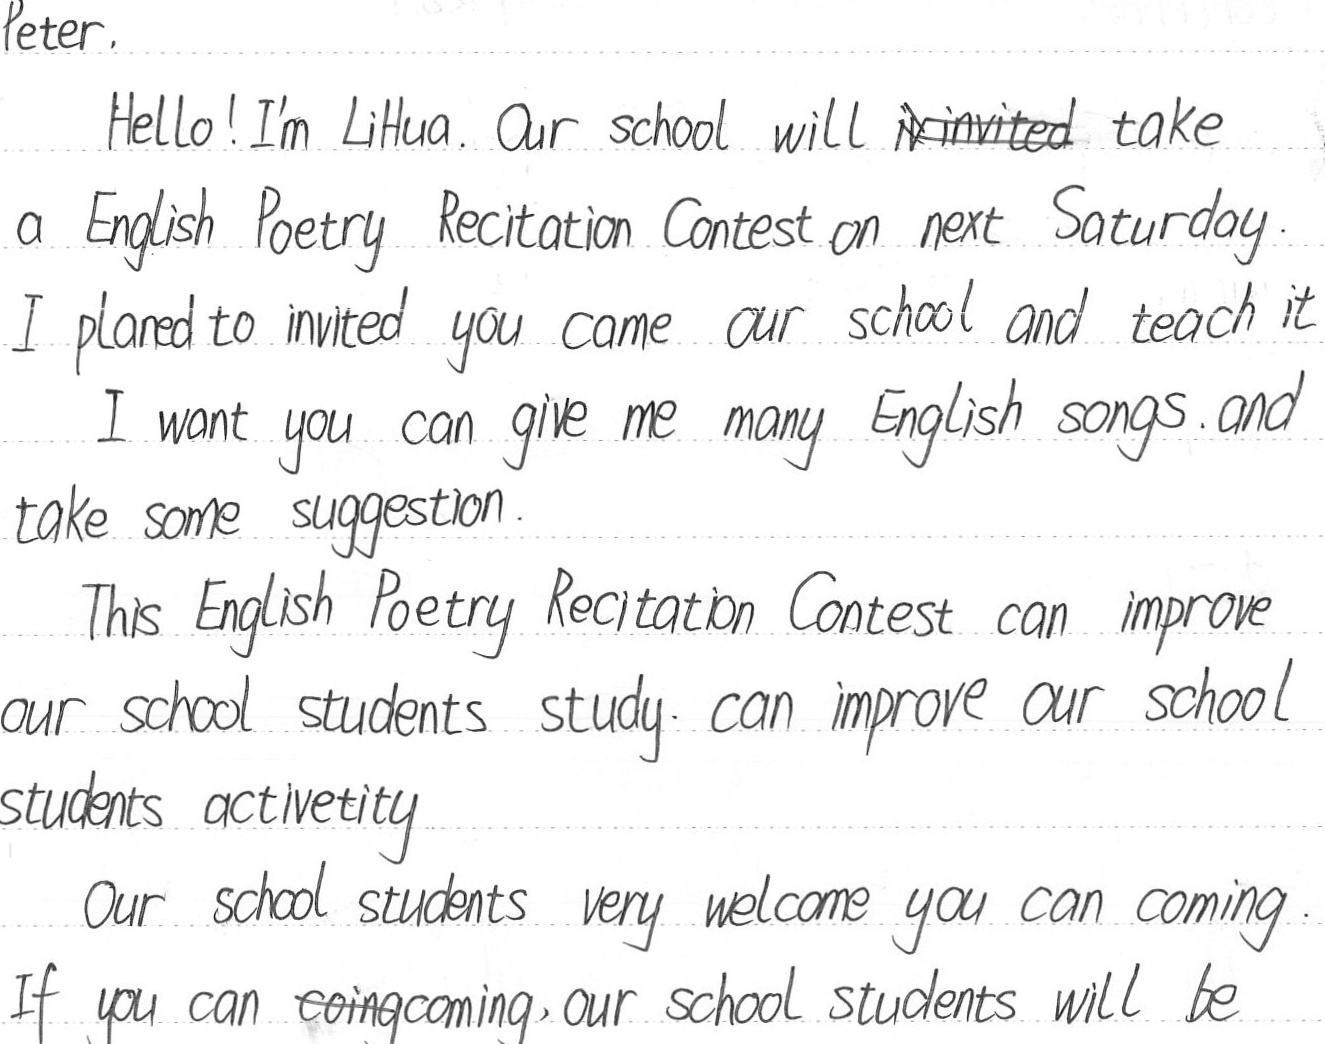 Peter.
Hello! I'm LiHua. Our school will take
a English Poetry Recitation Contest on next Saturday.
I planed to invited you came our school and teach it
I want you can give me many English songs. and
take some suggestion.
This English Poetry Recitation Contest can improve
our school students study. can improve our school
students activetity
Our school students very welcome you can coming.
If you can coming, our school students will be